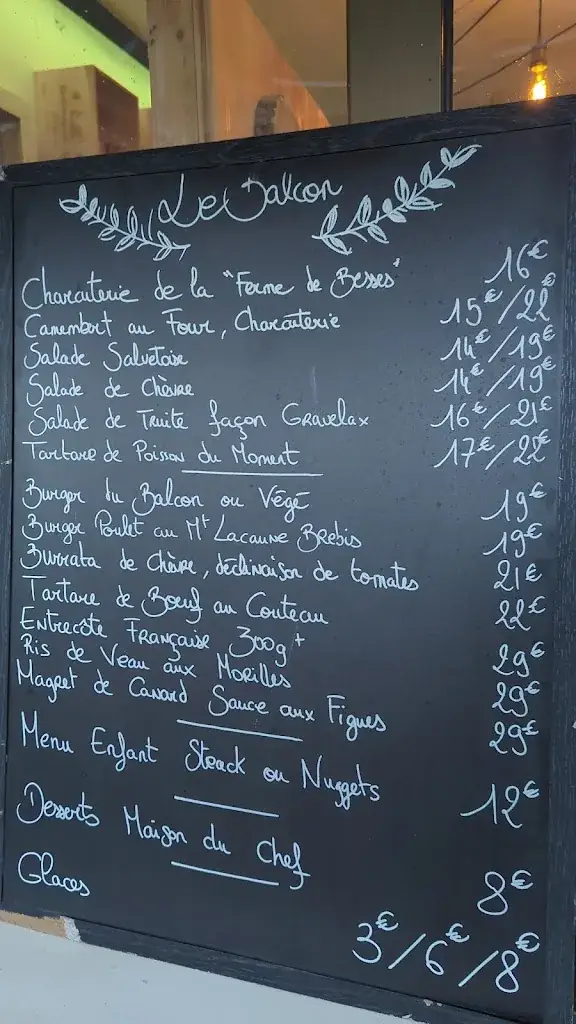 Le Balcon
Charcuterie de la "Ferme de Besses" 16€
Camembert au Four, Charcuterie 15€/22€
Salade Salvetoise 14€/19€
Salade de Chèvre 14€/19€
Salade de Truite façon Gravelax 16€/21€
Tartare de Poisson du Moment 17€/22€
Burger du Balcon ou Végé 19€
Burger Poulet au Mt Lacaune Brebis 19€
Burrata de Chèvre, déclinaison de tomates 21€
Tartare de Boeuf au Couteau 22€
Entrecôte Française 300g+ 29€
Ris de Veau aux Morilles 29€
Magret de Canard Sauce aux Figues 29€
Menu Enfant Steack ou Nuggets 12€
Desserts Maison du Chef 8€
Glaces 3€/6€/8€